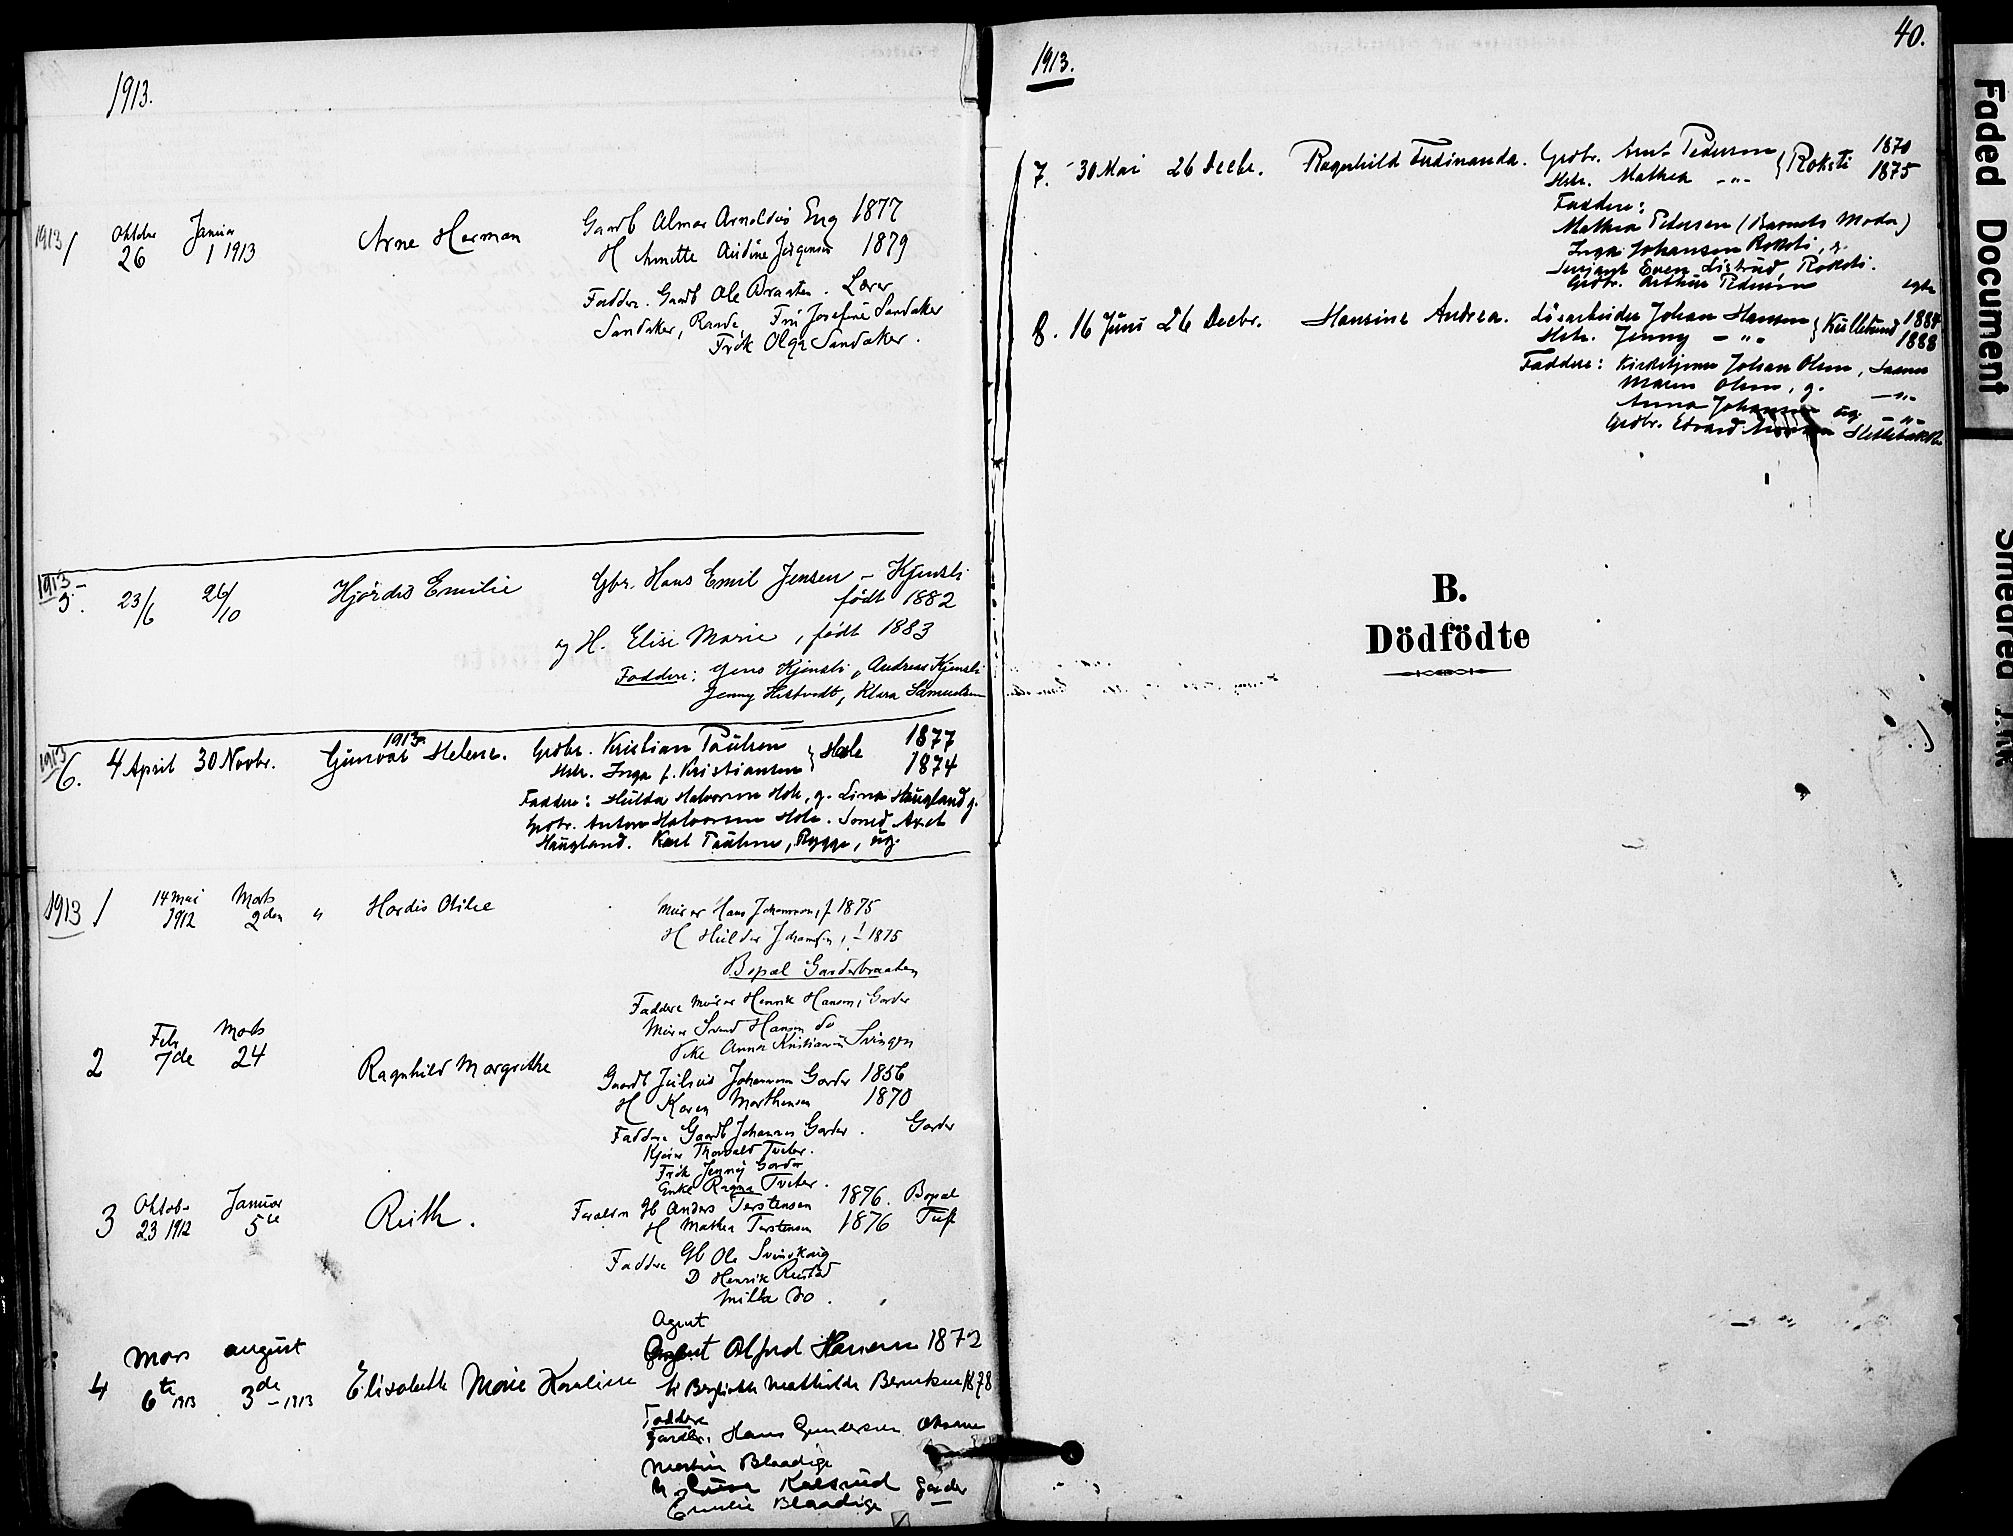 1913.
1913 1 Oktober 26 Januar 1 1913 Arne Herman Gaardb Almar Arnoldus Eng 1877
H Annette Jørgensen 1879
Faddre. Gaardb Ole Braaten. Lærer
Sandaker, Raade, Fru Josefine Sandaker
Frøk Olga Sandaker.
1913.- 5. 23/6 26/10 Hjørdis Emilie Gbr. Hans Emil Jensen - Kjensli
født 1882
og H. Elise Marie, født 1883
Faddere: Jens Kjensli, Andreas Kjensli
Jenny Hestvedt, Klara Samuelsen
1913 6. 4 April 1913 30 Novbr. Gunvor Helene. Grdbr. Kristian Paulsen } Hole 1877
Hstr. Inga f. Kristiansen 1874
Faddere: Hulda Halvorsen Hole, g. Lina Haugland g.
Grdbr. Anton Halvorsen Hole. Smed Axel
Haugland. Karl Paulsen, Rygge, ug.
1913 1 14 mai 1912 Marts 2den " Hardis Otilie Murer Hans Johannesen, f 1875
H Hulda Johansen, f - 1875
Bopæl Garderbraaten
Faddere Murer Henrik Hansen, Garder
Murer Svend Hansen do
Pike Anna Kristiansen Svingen
2 Feb 7de Marts 24 Ragnhild Margrethe Gaardb Julius Johannesen Garder 1856
H Karen Marthinsen 1870
Faddere Gaardb Johannes Garder. Garder
Kjører Thorvald Tveter.
Frøk Jenny Garder
Enke Ragna Tveter.
3 Oktob- 23 1912 Januar 5te Ruth. Forældre Gb Anders Torstensen 1876. Bopæl
H Mathea Torstensen 1876 Tuft
Faddere Gb Ole Svinskaug
D Henrik Rustad
Milla Do.
Agent
4 Mars 6te 1913 august 3de - 1913 Elisabeth Marie Karoline Agent Alfred Hansen 1872
H Bergliothe Mathilde Berntsen 1878
Faddere
Gardbr. Hans Gundersen
Martin Blaadige
H Kalsrud Garder
Emilie Blaadige
40.
1913.
7. 30 Mai 26 Decbr. Ragnhild Ferdinanda. Grdbr. Arnt Pedersen } Roksti 1870
Hstr. Mathea - " - 1875
Faddere:
Mathea Pedersen (Barnets Moder)
Inga Johansen Roksti, g.
Even Sigstad, Roksti.
Grdbr. Arthur Pedersen
8. 16 Juni 26 Decbr. Hansine Andrea. Løsarbeider Johan Hansen } Kullebund 1884
Hstr. Jenny - " - 1888
Faddere: Kirketjener Johan Olsen, Saaner
Maren Olsen, g. - " -
Anna Johansen ug. - " -
Grdbr. Edvard
B.
Dödfödte
Faded Document
Smeared Ink